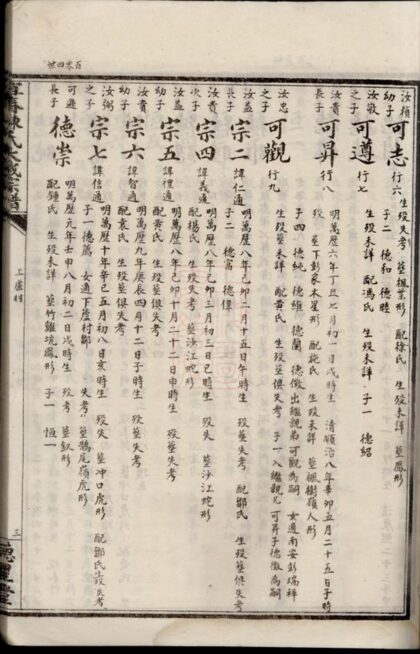 百零四世
汝積幼子 可志 行六 生歿失考 葬楓葉形 配徐氏 生歿失考 葬鳳形
子二 德和 德睦
汝敬之子 可遵 行七 生歿未詳 配馮氏 生歿未詳 子一 德紹
汝貴長子 可昇 行八 明萬歷六年丁丑七月初一日戌時生 清順治八年辛卯五月二十五日子時
歿 葬下彭家木星形 配施氏 生歿未詳 葬楓樹嶺人形
子四 德純 德維 德蘭 德徵出繼親弟可觀為嗣 女適南安彭瑞祥
汝忠之子 可觀 行九 生歿未詳 配黃氏 生歿葬俱失考 子一入繼親兄可昇子德徵為嗣
汝益長子 宗二 諱仁通 明萬歷八年己卯二月十五日午時生 歿葬失考 配鄒氏 生歿葬俱失考
子二 德富 德偉
汝貴次子 宗四 諱義通 明萬歷八年己卯三月初三日巳時生 歿失 葬沙江蛇形
配楊氏 生歿失考 葬沙江蛇形
汝益幼子 宗五 諱禮通 明萬歷八年己卯十月二十二日申時生 歿葬失考
配黃氏 生歿葬俱失考
汝貴幼子 宗六 諱智通 明萬歷九年庚辰四月十二日子時生 歿葬失考
配袁氏 生歿葬俱失考
汝弼之子 宗七 諱信通 明萬歷十年辛巳五月初八日亥時生 歿失 葬冲口虎形 配鄒氏生歿失考
子一 德薦 女適下蘆村鄒 失考 葬鵝尾嶺虎形
可遜長子 德崇 明萬歷元年壬申八月初二日戌時生 歿考 葬釵形
配鍾氏 生歿未詳 葬竹雞坑鳳形 子一 恒一
氏大成宗譜
上盧村
三